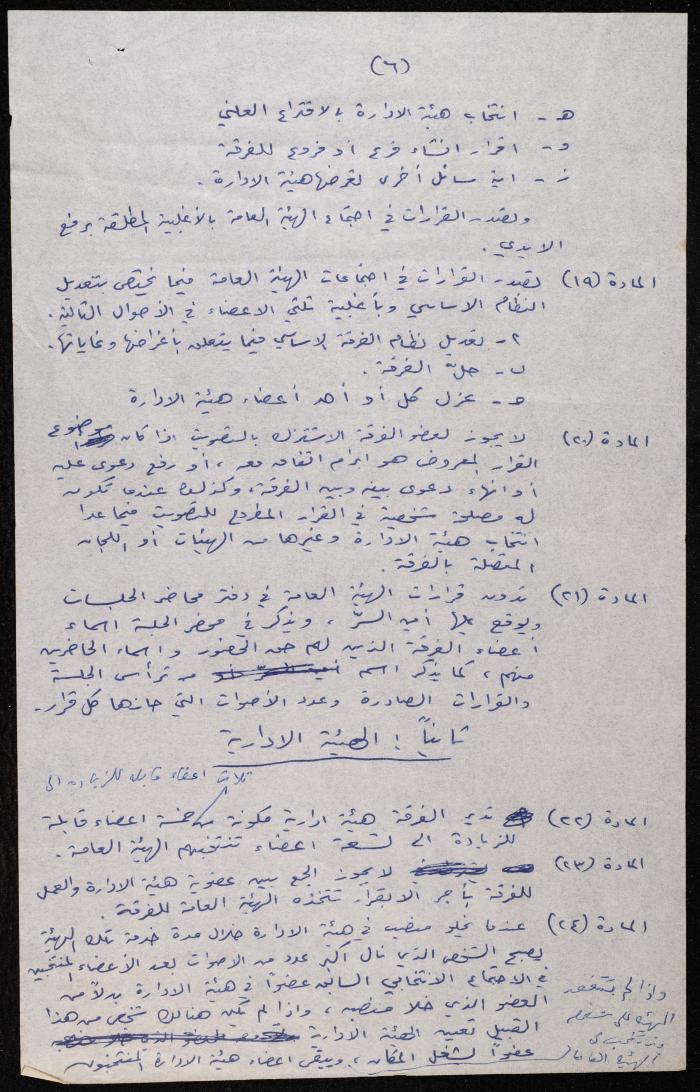 (٦)
هـ - انتخاب هيئة الادارة بالاقتراع العلني
و - اقرار انشاء فرع او فروع للفرقة
ز - اية مسائل أخرى تعرضها هيئة الادارة .
وتصدر القرارات في اجتماع الهيئة العامة بالأغلبية المطلقة برفع
الايدي .
المادة (١٩) تصدر القرارات في اجتماعات الهيئة العامة فيما يختص بتعديل
النظام الاساسي وبأغلبية ثلثي الاعضاء في الأحوال التالية .
٢ - تعديل نظام الفرقة الاساسي فيما يتعلق بأغراضها وغاياتها .
ب - حلّ الفرقة .
حـ - عزل كل أو أحد أعضاء هيئة الادارة
المادة (٢٠) لا يجوز لعضو الفرقة الاشتراك بالتصويت اذا كان موضوع
القرار المعروض هو ابرام اتفاق معه ، أو رفع دعوى عليه
أو انهاء دعوى بينه وبين الفرقة ، وكذلك عندما تكون
له مصلحة شخصية في القرار المطروح للتصويت فيما عدا
انتخاب هيئة الادارة وغيرها من الهيئات أو اللجان
المتصلة بالفرقة .
المادة (٢١) تدون قرارات الهيئة العامة في دفتر محاضر الجلسات
ويوقع عليها أمين السرّ ، ويذكر في محضر الجلسة اسماء
أعضاء الفرقة الذين لهم حق الحضور واسماء الحاضرين
منهم ، كما يذكر اسم من ترأس الجلسة
والقرارات الصادرة وعدد الأصوات التي حازها كل قرار .
ثانياً : الهيئة الادارية
ثلاث اعضاء قابلة للزيادة الى
المادة (٢٢) تدير الفرقة هيئة ادارية مكونة من خمسة اعضاء قابلة
للزيادة الى تسعة اعضاء تنتخبهم الهيئة العامة .
المادة (٢٣) لا يجوز الجمع بين عضوية هيئة الادارة والعمل
للفرقة بأجر الا بقرار تتخذه الهيئة العامة للفرقة .
المادة (٢٤) عندما يخلو منصب في هيئة الادارة خلال مدة خدمة تلك الهيئة
يصبح الشخص الذي نال أكثر عدد من الاصوات بعد الأعضاء المنتخبين
في الاجتماع الانتخابي السابق عضواً في هيئة الادارة بدلاً من
العضو الذي خلا منصبه ، واذا لم يكن هنالك شخص من هذا
القبيل تعين الهيئة الادارية
عضواً لشغل المكان ، ويبقى اعضاء هيئة الادارة المنتخبون
واذا لم
الهيئة على
الهيئة العامة